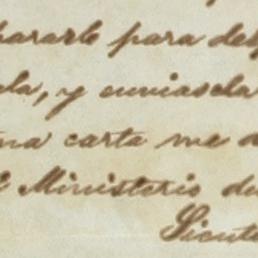 pararle para des
la, y enviasela
na carta me d
l Ministerio de
Siento